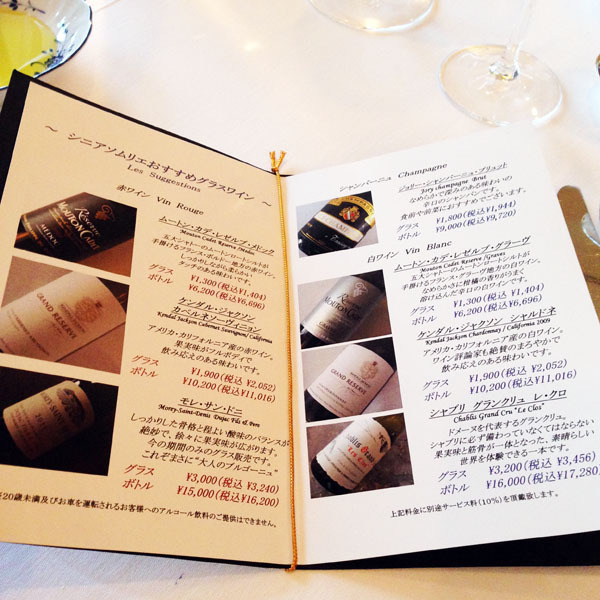 ～ シニアソムリエおすすめグラスワイン ～
Les Suggestions
赤ワイン Vin Rouge
ムートン・カデ・レゼルブ・メドック
Mouton Cadet Reserve Medoc
五大シャトーのムートンロートシルトが
手掛けるフランス・ボルドー地方の赤ワイン。
しっかりしながら柔らかい
タンチのある味わいです。
グラス ¥1,300(税込 ¥1,404)
ボトル ¥6,200(税込 ¥6,696)
ケンダル・ジャクソン
カベルネソーヴィニョン
Kendal Jackson Cabernet Sauvignon/ California
アメリカ・カリフォルニア産の赤ワイン。
果実味がフルボディで
飲み応えのある味わいです。
グラス ¥1,900(税込 ¥2,052)
ボトル ¥10,200(税込 ¥11,016)
モレ・サン・ドニ
Morey-Saint-Denis Dujac Fils & Pere
しっかりした骨格と程よい酸味のバランスが
絶妙で、徐々に果実味が広がります。
今の期間のみのグラス販売です。
これぞまさに"大人のブルゴーニュ"
グラス ¥3,000(税込 ¥3,240)
ボトル ¥15,000(税込 ¥16,200)
20歳未満及びお車を運転されるお客様へのアルコール飲料のご提供はできません。
シャンパーニュ Champagne
ジョリー・シャンパーニュ・ブリュット
Jory champagne Brut
なめらかで深みのある味わいの
辛口のシャンパンです。
食前や前菜におすすめでございます。
グラス ¥1,800(税込 ¥1,944)
ボトル ¥9,000(税込 ¥9,720)
白ワイン Vin Blanc
ムートン・カデ・レゼルブ・グラーヴ
Mouton Cadet Reserve /Graves
五大シャトーのムートンロートシルトが
手掛けるフランス・グラーヴ地方の白ワイン。
なめらかさに柑橘の香りがうまく
溶け込んだ辛口の白ワインです。
グラス ¥1,300(税込 ¥1,404)
ボトル ¥6,200(税込 ¥6,696)
ケンダル・ジャクソン シャルドネ
Kendal Jackson Chardonnay / California 2009
アメリカ・カリフォルニア産の白ワイン。
ワイン評論家も絶賛のまろやかで
飲み応えのある味わいです。
グラス ¥1,900(税込 ¥2,052)
ボトル ¥10,200(税込 ¥11,016)
シャブリ グランクリュ レ・クロ
Chablis Grand Cru "Le Clos"
ドメーヌを代表するグランクリュ。
シャブリに必ず備わっていなくてはならない
果実味と筋骨が一体となった、素晴らしい
世界を体験できる一本です。
グラス ¥3,200(税込 ¥3,456)
ボトル ¥16,000(税込 ¥17,280)
上記料金に別途サービス料(10%)を頂戴致します。
Reserve
MOUTON CADET
MEDOC
GRAND RESERVE
GRAND RESERVE